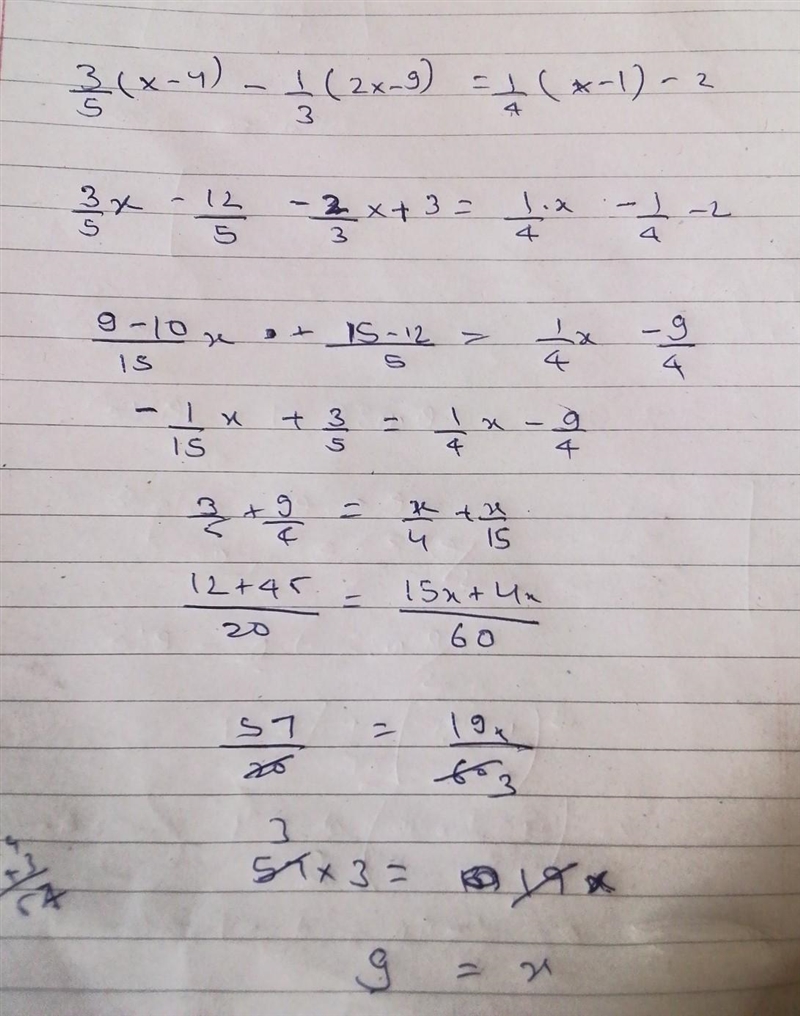 3/5 (x-4) - 1/3 (2x-9) = 1/4 (x-1) - 2
3/5 x - 12/5 - 2/3 x + 3 = 1/4 · x - 1/4 - 2
9-10/15 x + 15-12/5 = 1/4 x - 9/4
- 1/15 x + 3/5 = 1/4 x - 9/4
3/5 + 9/4 = x/4 + x/15
12+45/20 = 15x+4x/60
57/20 = 19x/60 3
3
57 × 3 = 19 x
9 = x